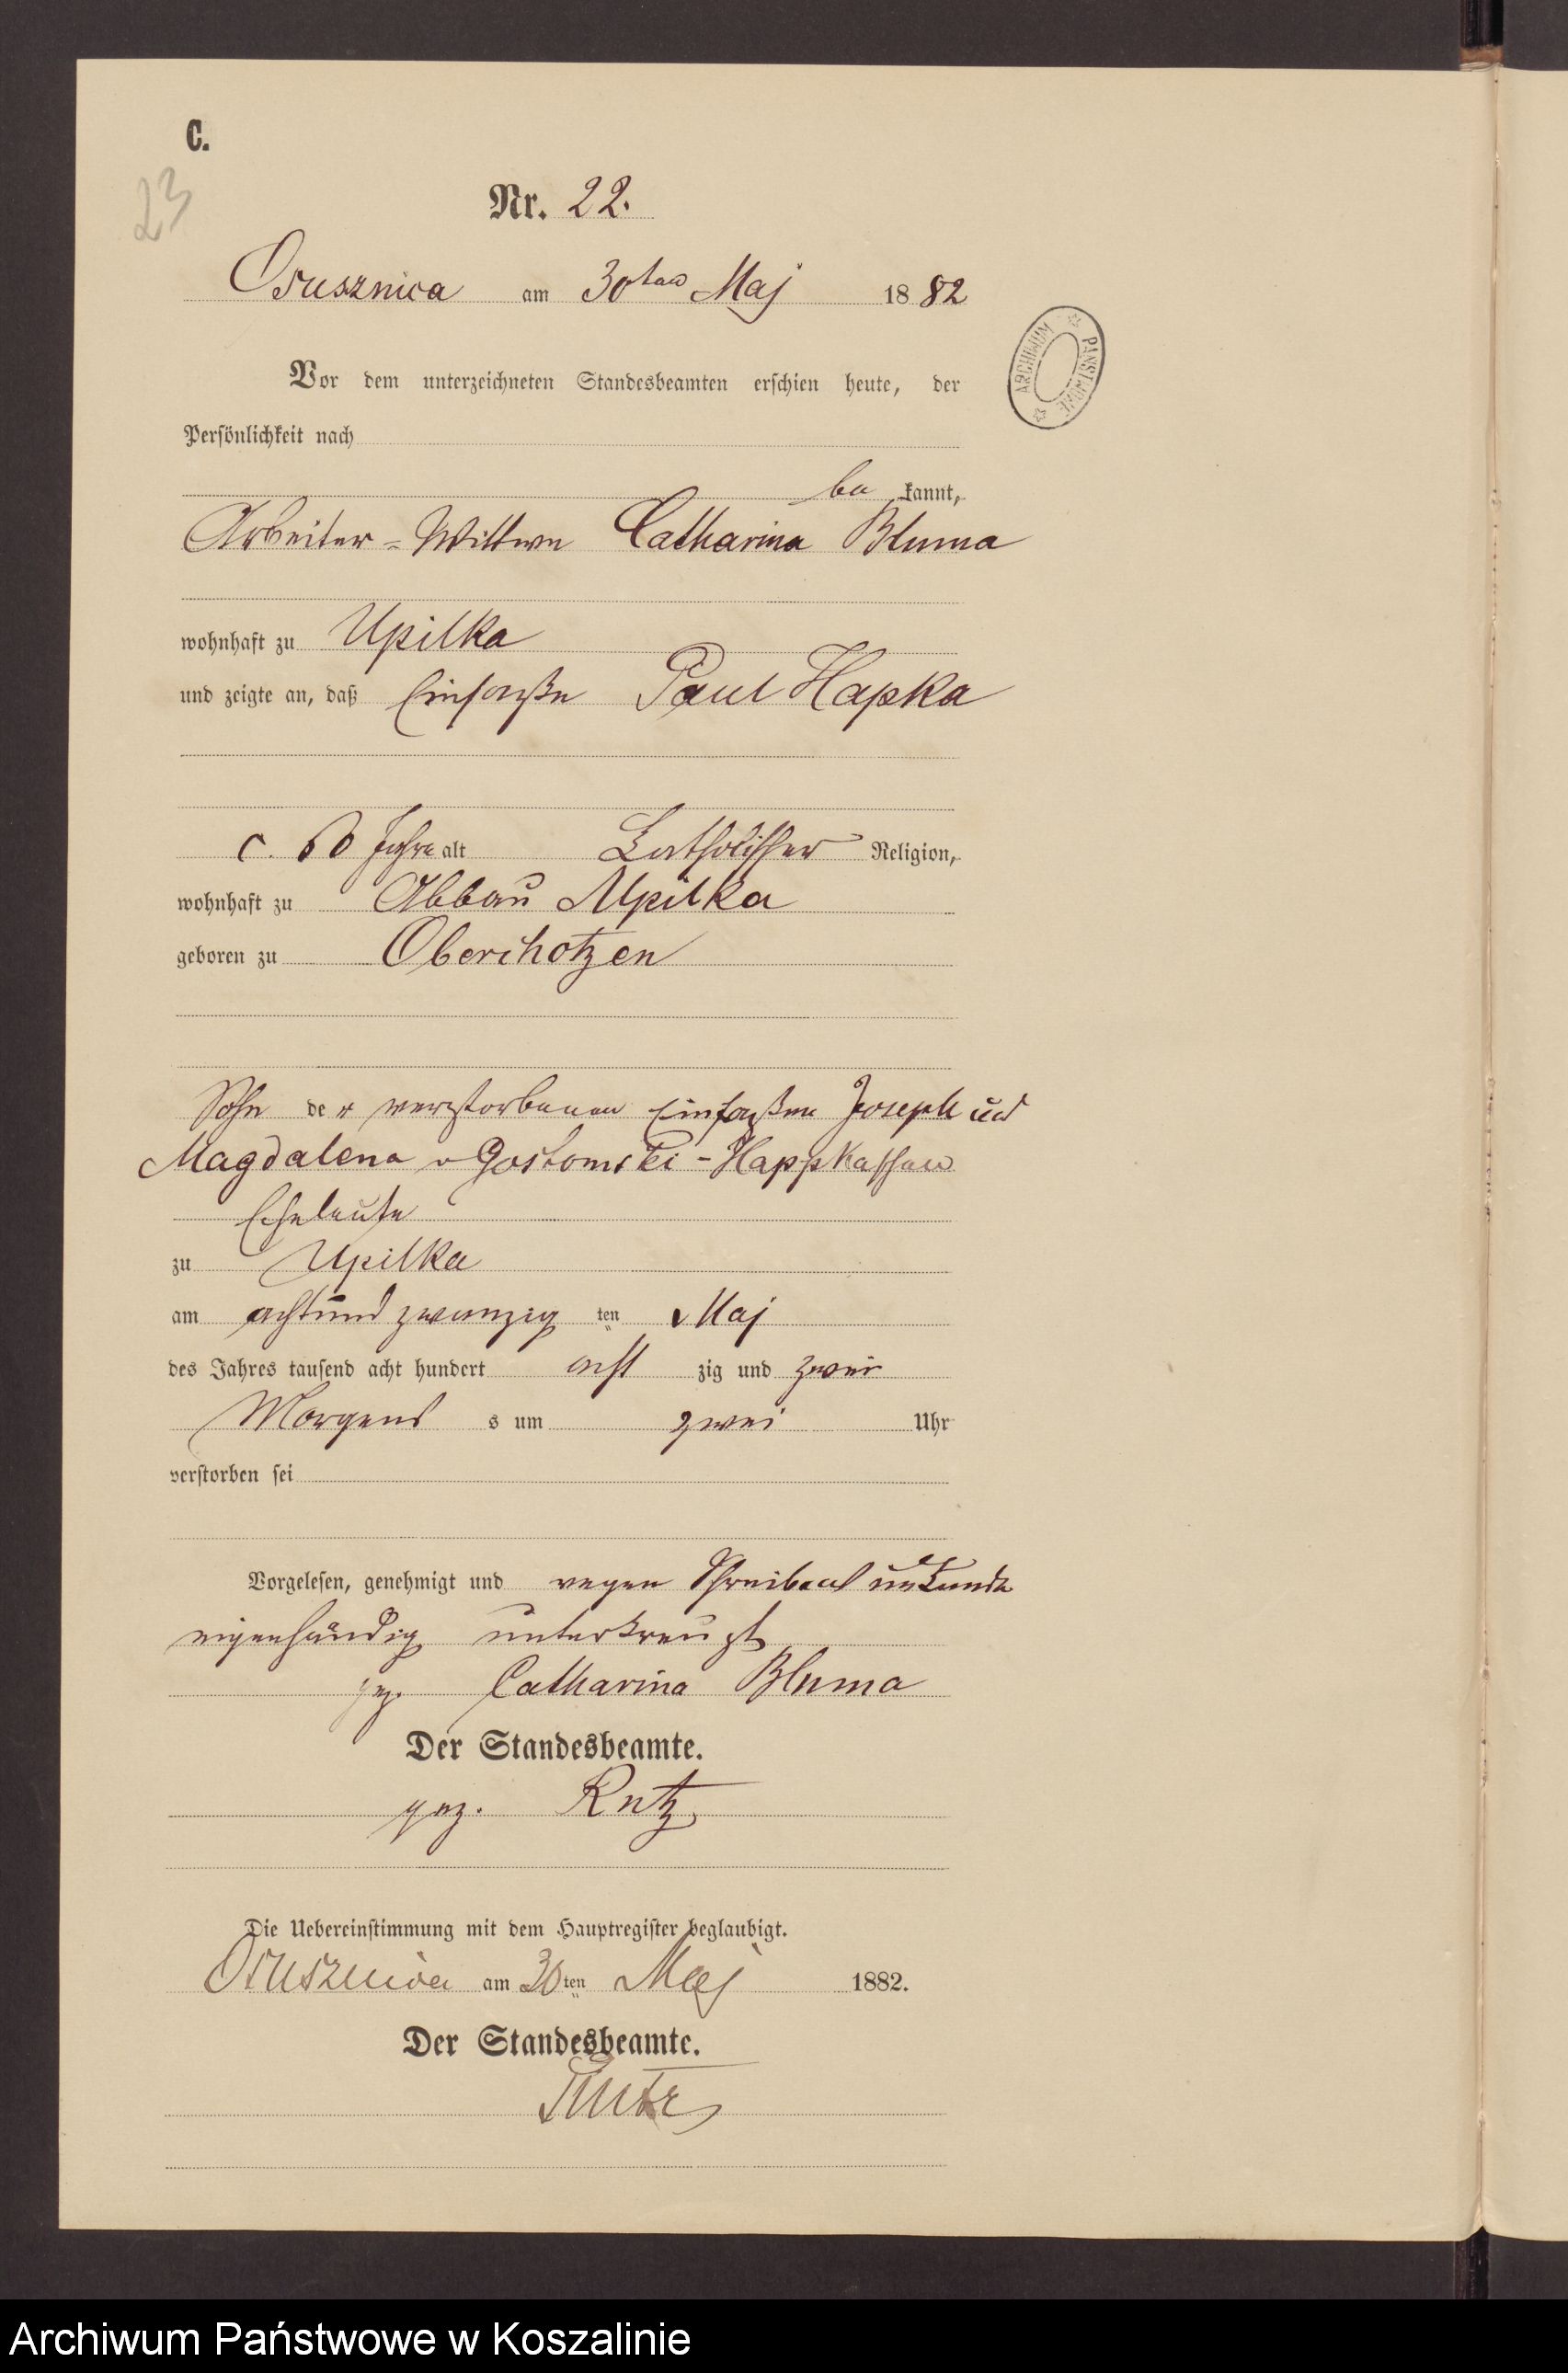 C.
23
Nr. 22.
Osusznica am 30ten Maj 1882
Vor dem unterzeichneten Standesbeamten erschien heute, der
Persönlichkeit nach
be kannt,
Arbeiter-Wittwe Catharina Bluma
wohnhaft zu Upilka
und zeigte an, daß Einsaße Paul Hapka
c. 60 Jahre alt katholischer Religion,
wohnhaft zu Abbau Upilka
geboren zu Oberchotzen
Sohn der verstorbenen Einsaßen Joseph und
Magdalena v Gostomski-Happkaschen
Eheleute
zu Upilka
am achtundzwanzig ten Maj
des Jahres tausend acht hundert acht zig und zwei
Morgens s um zwei Uhr
verstorben sei
Vorgelesen, genehmigt und wegen Schreibens unkunde
eigenhändig unterkreuzt
gez. Catharina Bluma
Der Standesbeamte.
gez. Rutz
Die Uebereinstimmung mit dem Hauptregister beglaubigt.
Osusznica am 30ten Maj 1882.
Der Standesbeamte.
Rutz
ARCHIWUM PAŃSTWOWE
Archiwum Państwowe w Koszalinie